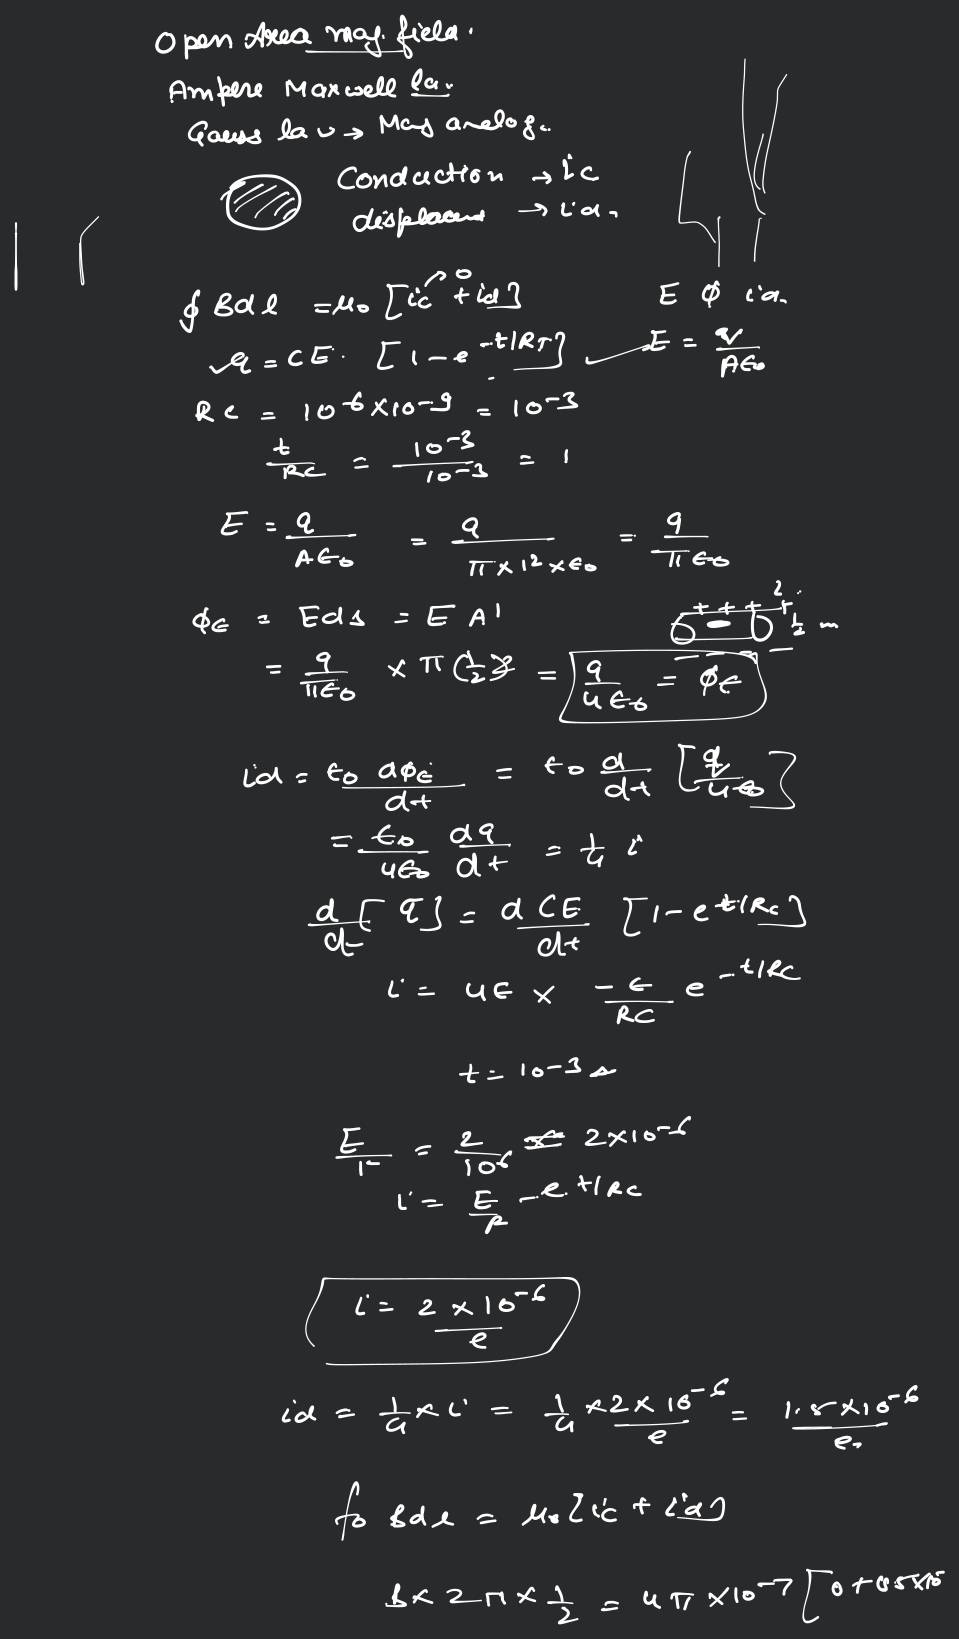 Open Area mag. field.
Ampere Maxwell law
Gauss law → Mag analog.
Conduction → ic
→ id,
∮ Bdl = μ₀ [ic → 0 + id]
E ϕ id.
q = CE. [1-e^-t/RT]
E = q/Aε₀
Rc = 10^6 × 10^-9 = 10^-3
t/RC = 10^-3/10^-3 = 1
E = q/Aε₀ = q/π×1²×ε₀ = q/πε₀
ϕE = Eds = E A'
+ + + + 1/2 m
= q/πε₀ × π(1/2)² = q/4ε₀ = ϕE
id = ε₀ dϕE/dt = ε₀ d/dt [q/4ε₀]
= ε₀/4ε₀ dq/dt = 1/4 i
d/d [q] = d CE/dt [1-e^t/Rc]
i = 4E × -E/RC e^-t/RC
t = 10^-3 s
= 2/10^6 2×10^-6
i = E/R -e t/RC
i = 2×10^-6/e
id = 1/4 × i = 1/4 × 2×10^-6/e = 1.5×10^-6/e
Bdl = μ₀[ic + id]
B× 2π × 1/2 = 4π ×10^-7 [0+